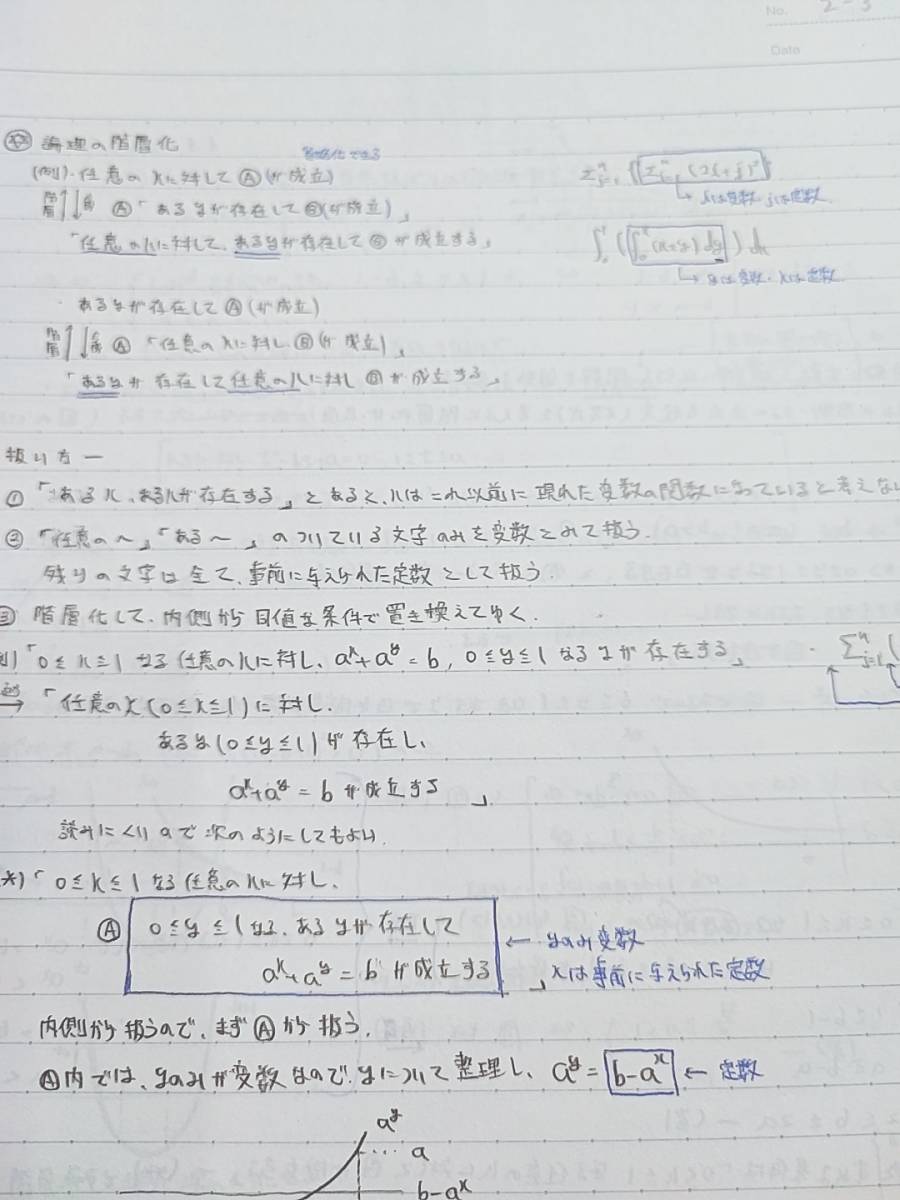 No. 2-3
Date
論理の階層化
(例)・任意のxに対してⒶ(が成立)
Ⓐ「あるyが存在してⒷ(が成立)」
「任意のxに対して、あるyが存在してⒷが成立する」
xは定数
yは変数・xは定数
・あるyが存在してⒶ(が成立)
Ⓐ「任意のxに対しⒷ(が成立)」
「あるyが存在して任意のxに対しⒷが成立する」
扱い方ー
①「あるx、あるxが存在する」とあると、xはこれ以前に現れた変数の関数になっていると考えな
②「任意の〜」「ある〜」のついている文字のみを変数とみて扱う.
残りの文字は全て、事前に与えられた定数として扱う.
③階層化して、内側から同値な条件で置き換えてゆく.
例)「0≦x≦1なる任意のxに対し、aˣ+aʸ=b, 0≦y≦1なるyが存在する」
→「任意のx(0≦x≦1)に対し.
あるy(0≦y≦1)が存在し、
aˣ+aʸ=bが成立する」
読みにくいので次のようにしてもよい.
*)「0≦x≦1なる任意のxに対し.
Ⓐ 0≦y≦1なる、あるyが存在して ← yのみ変数
aˣ+aʸ=bが成立する」 xは事前に与えられた定数
内側から扱うので、まずⒶから扱う.
Ⓐ内では、yのみが変数なのでyについて整理し、aʸ=b-aˣ ← 定数
aʸ
a
b-aˣ